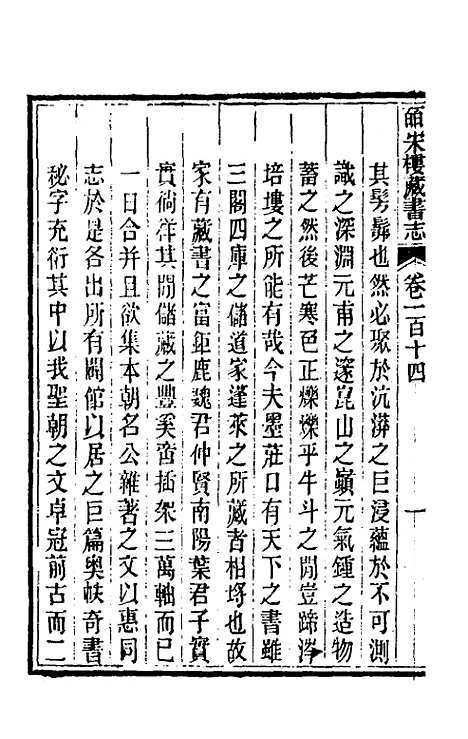 皕宋樓藏書志
卷一百十四
一
其髣髴也然必聚於沆漭之巨浸蘊於不可測
識之深淵元甫之邃崑山之巔元氣鍾之造物
蓄之然後芒寒色正爍爍乎牛斗之閒豈蹄涔
培塿之所能有哉今夫墨莊口有天下之書雖
三閣四庫之儲道家蓬萊之所藏者相埒也故
家有藏書之富鉅鹿魏君仲賢南陽葉君子實
實徜徉其閒儲藏之豐奚啻插架三萬軸而已
一日合并且欲集本朝名公雜著之文以惠同
志於是各出所有闢館以居之巨篇奧帙奇書
秘字充衍其中以我聖朝之文卓冠前古而二